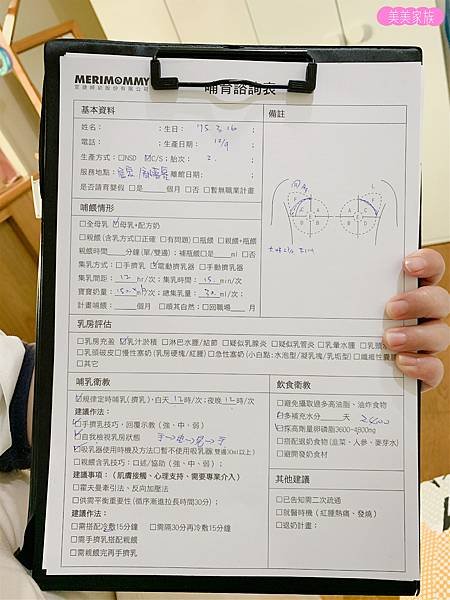 美美家族
MERIMOMMY
哺育諮詢表
基本資料
姓名： ;生日： 75.2.16 ;
電話： ;生產日期： 12/9 ;
生產方式：□NSD ☑C/S；胎次： 2. ;
服務地點： 離館日期： ;
是否請育嬰假 □是____個月 □否 □暫無職業計畫
哺餵情形
□全母乳 ☑母乳+配方奶
□親餵(含乳方式□正確 □有問題)□瓶餵 □親餵+瓶餵
親餵時間____分鐘(單/雙邊)；補瓶餵□是____ml □否
集乳方式：□手擠乳 ☑電動擠乳器 □手動擠乳器
集乳間距： 12 hr/次；集乳時間： 15 min/次
寶寶奶量： /次；總集乳量： 30 ml/次；
計畫哺餵：____個月 □順其自然；□回職場____月
乳房評估
□乳房充盈 ☑乳汁淤積 □淋巴水腫/結節 □疑似乳腺炎 □疑似乳管炎 □乳暈水腫 □乳頭
□乳頭破皮□慢性塞奶(乳房硬塊/紅腫)□急性塞奶(小白點:水泡型/凝乳塊/乳垢型)□纖維性囊腫
□其它
哺乳衛教
☑規律定時哺乳(擠乳)，白天 12 時/次；夜晚 12 時/次
建議作法：
☑手擠乳技巧，回覆示教（強、中、弱）
☑自我檢視乳房狀態
☑吸乳器使用時機及方法□暫不使用吸乳器(雙邊30ml以上)
□親餵含乳技巧；口述/協助（強、中、弱）;
建議事項：（肌膚接觸、心理支持、需要專業介入）
□霍夫曼牽引法、反向加壓法
□供需平衡重要性(循序漸進拉長時間30分)；
建議作法：
□需搭配冷敷15分鐘 □需隔30分再冷敷15分鐘
□需手擠乳搭配親餵
□需親餵完再手擠乳
備註
飲食衛教
□避免攝取過多高油脂、油炸食物
☑多補充水分____天 2400
☑採高劑量卵磷脂3600-4800mg
□搭配退奶食物(韭菜、人參、麥芽水)
□避開發奶食材
其他建議
□已告知需二次疏通
□就醫時機（紅腫熱痛、發燒）
□退奶計畫；